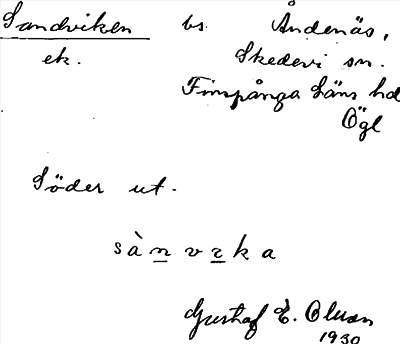 Sandviken bs. Åndenäs,
ek. Skedevi sn.
Finspånga läns hd
Ögl
Söder ut.
sànvɩka
Gustaf E. Olsson
1930